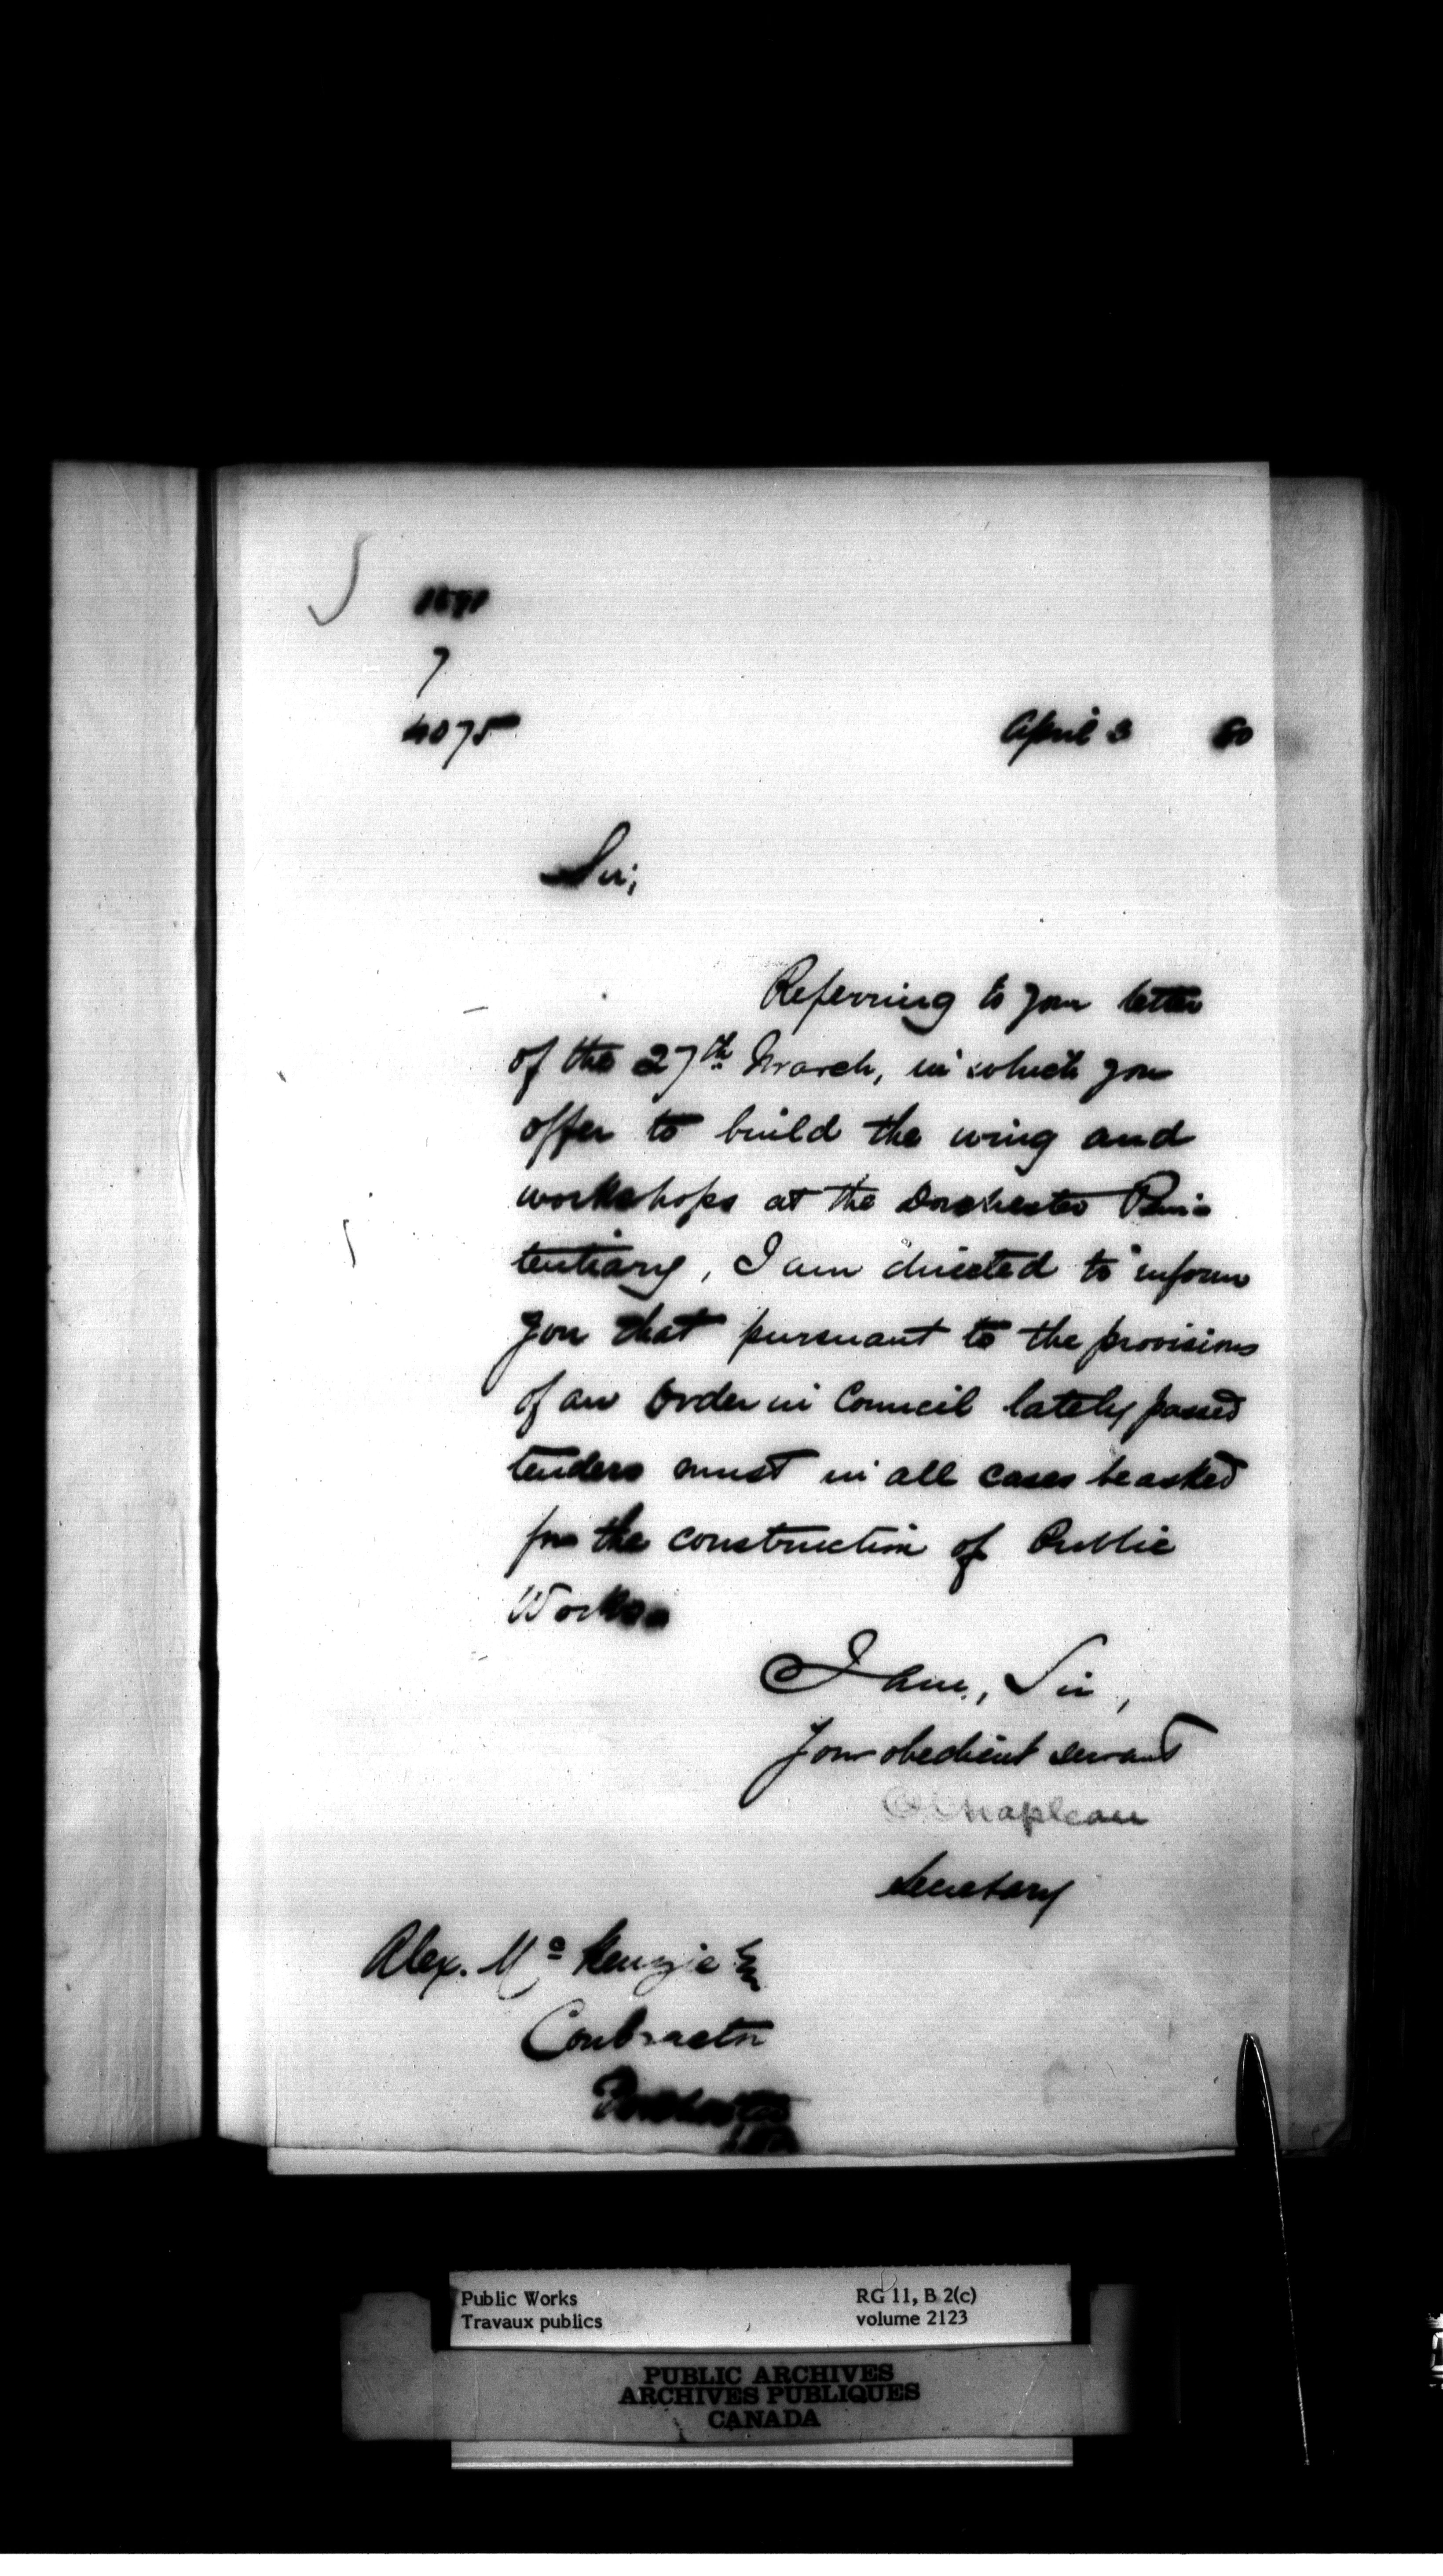 7
4075
April 3 80
Sir,
Referring to your letter
of the 27th March, in which you
offer to build the wing and
workshops at the Dorchester Peni-
tentiary, I am directed to inform
you that pursuant to the provisions
of an Order in Council lately passed
tenders must in all cases be asked
for the construction of Public
Works.
I am, Sir,
Your obedient servant
Chapleau
Secretary
Alex. Mc Kenzie Esq
Contractor
Dorchester
Public Works
Travaux publics
RG 11, B 2(c)
volume 2123
PUBLIC ARCHIVES
ARCHIVES PUBLIQUES
CANADA